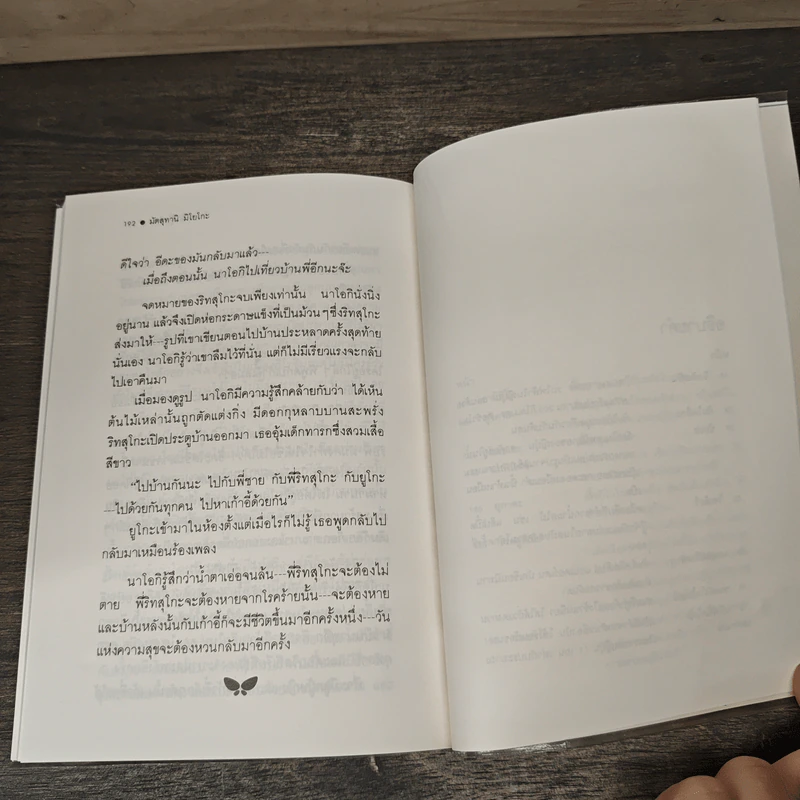 192 ● มัตสุทานิ มิโยโกะ
ดีใจว่า อีดะของมันกลับมาแล้ว---
เมื่อถึงตอนนั้น นาโอกิไปเที่ยวบ้านพี่อีกนะจ๊ะ
จดหมายของริทสุโกะจบเพียงเท่านั้น นาโอกินั่งนิ่ง
อยู่นาน แล้วจึงเปิดห่อกระดาษแข็งที่เป็นม้วนๆซึ่งริทสุโกะ
ส่งมาให้---รูปที่เขาเขียนตอนไปบ้านประหลาดครั้งสุดท้าย
นั่นเอง นาโอกิรู้ว่าเขาลืมไว้ที่นั่น แต่ก็ไม่มีเรี่ยวแรงจะกลับ
ไปเอาคืนมา
เมื่อมองดูรูป นาโอกิมีความรู้สึกคล้ายกับว่า ได้เห็น
ต้นไม้เหล่านั้นถูกตัดแต่งกิ่ง มีดอกกุหลาบบานสะพรั่ง
ริทสุโกะเปิดประตูบ้านออกมา เธออุ้มเด็กทารกซึ่งสวมเสื้อ
สีขาว
“ไปบ้านกันนะ ไปกับพี่ชาย กับพี่ริทสุโกะ กับยูโกะ
---ไปด้วยกันทุกคน ไปหาเก้าอี้ด้วยกัน”
ยูโกะเข้ามาในห้องตั้งแต่เมื่อไรก็ไม่รู้ เธอพูดกลับไป
กลับมาเหมือนร้องเพลง
นาโอกิรู้สึกว่าน้ำตาเอ่อจนล้น---พี่ริทสุโกะจะต้องไม่
ตาย พี่ริทสุโกะจะต้องหายจากโรคร้ายนั้น---จะต้องหาย
และบ้านหลังนั้นกับเก้าอี้ก็จะมีชีวิตขึ้นมาอีกครั้งหนึ่ง---วัน
แห่งความสุขจะต้องหวนกลับมาอีกครั้ง